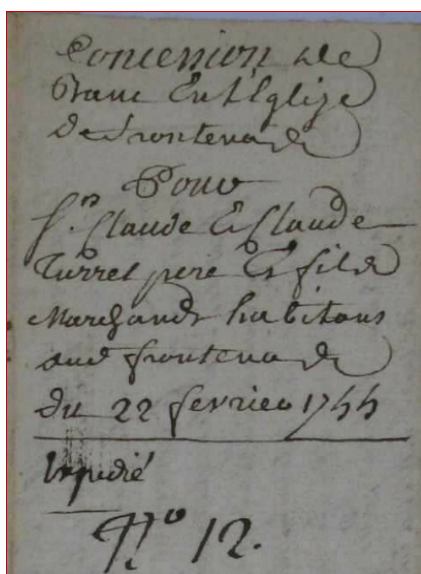 Concession de
Banc En l'Eglize
de frontenad
Pour
Sr. Claude & Claude
Turret pere & fils
Marchands habitans
aud frontenad
du 22 fevrier 1744
Expedié
No 12.